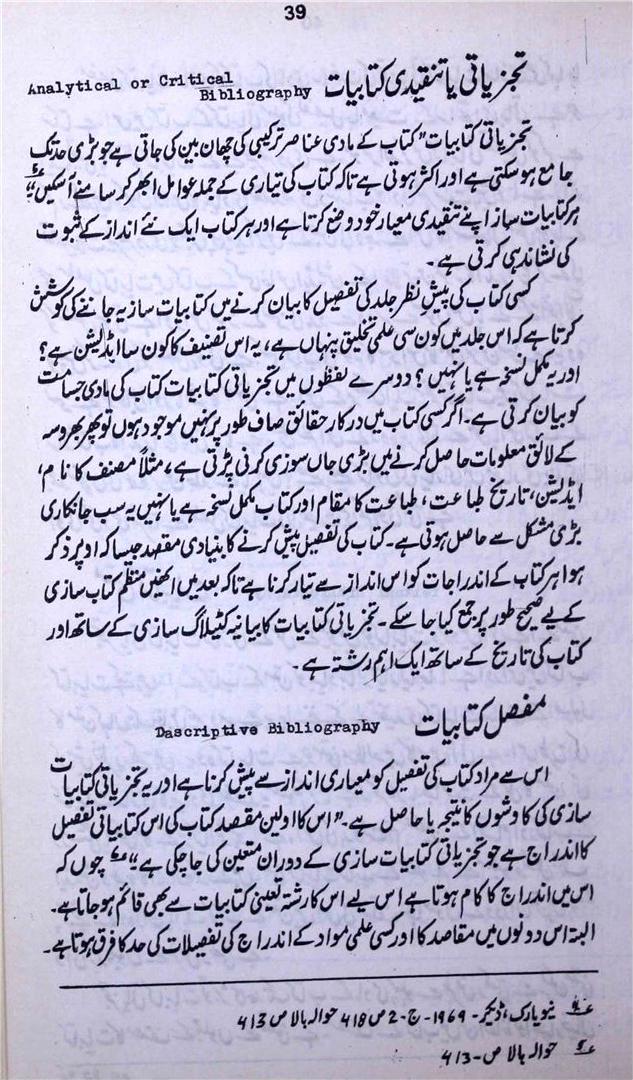 39
تجزیاتی یا تنقیدی کتابیات Analytical or Critical
Bibliography
تجزیاتی کتابیات" کتاب کے مادی عناصر ترکیبی کی چھان بین کی جاتی ہے جو بڑی حد تک
جامع ہو سکتی ہے اور اکثر ہوتی ہے تاکہ کتاب کی تیاری کے جملہ عوامل ابھر کر سامنے آ سکیں"
ہر کتابیات ساز اپنے تنقیدی معیار خود وضع کرتا ہے اور ہر کتاب ایک نئے انداز کے ثبوت
کی نشاندہی کرتی ہے۔
کسی کتاب کی پیش نظر جلد کی تفصیل کا بیان کرنے میں کتابیات ساز یہ جاننے کی کوشش
کرتا ہے کہ اس جلد میں کون سی علمی تخلیق پنہاں ہے، یہ اس تصنیف کا کون سا ایڈیشن ہے؟
اور یہ مکمل نسخہ ہے یا نہیں؟ دوسرے لفظوں میں تجزیاتی کتابیات کتاب کی مادی جسامت
کو بیان کرتی ہے۔ اگر کسی کتاب میں درکار حقائق صاف طور پر نہیں موجود ہوں تو پھر بھروسہ
کے لائق معلومات حاصل کرنے میں بڑی جاں سوزی کرنی پڑتی ہے، مثلاً مصنف کا نام،
ایڈیشن، تاریخ طباعت، طباعت کا مقام اور کتاب مکمل نسخہ ہے یا نہیں یہ سب جانکاری
بڑی مشکل سے حاصل ہوتی ہے۔ کتاب کی تفصیل پیش کرنے کا بنیادی مقصد جیسا کہ اوپر ذکر
ہوا ہر کتاب کے اندراجات کو اس انداز سے تیار کرنا ہے تاکہ بعد میں انھیں منظم کتاب سازی
کے لیے صحیح طور پر جمع کیا جا سکے۔ تجزیاتی کتابیات کا بیانیہ کٹیلاگ سازی کے ساتھ اور
کتاب کی تاریخ کے ساتھ ایک اہم رشتہ ہے۔
مفصل کتابیات Dascriptive Bibliography
اس سے مراد کتاب کی تفصیل کو معیاری انداز سے پیش کرنا ہے اور یہ تجزیاتی کتابیات
سازی کی کاوشوں کا نتیجہ یا حاصل ہے۔ "اس کا اولین مقصد کتاب کی اس کتابیاتی تفصیل
کا اندراج ہے جو تجزیاتی کتابیات سازی کے دوران متعین کی جا چکی ہے" چوں کہ
اس میں اندراج کا کام ہوتا ہے اس لیے اس کا رشتہ تعینی کتابیات سے بھی قائم ہو جاتا ہے۔
البتہ اس دونوں میں مقاصد کا اور کسی علمی مواد کے اندراج کی تفصیلات کی حد کا فرق ہوتا ہے۔
نیویارک، ڈیکر۔ 1969۔ ج۔ 2 ص 418 حوالہ بالا ص 413
حوالہ بالا ص۔ 413